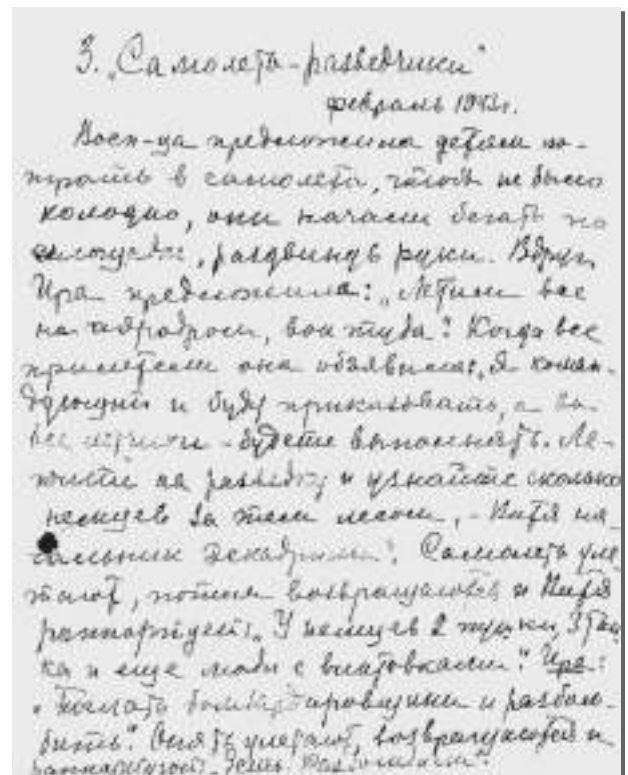 3. „Самолеты-разведчики"
февраль 1943г.
Восп-ца предложила детям по-
играть в самолеты, чтобы не было
холодно, они начали бегать по
площадке, раздвинув руки. Вдруг
Ира предложила: „Летим все
на аэродром, вон туда". Когда все
прилетели она объявила: „Я коман-
дующий и буду приказывать, а вы
все летчики - будете выполнять. Ле-
тите на разведку и узнайте сколько
немцев за тем лесом, - Витя на-
чальник эскадрильи". Самолеты уле-
тают, потом возвращаются и Витя
раппортует: „У немцев 2 пушки, 3 тан-
ка и еще люди с винтовками". Ира:
„Послать бомбардировщики и разбом-
бить". Опять улетают, возвращаются и
раппортуют: